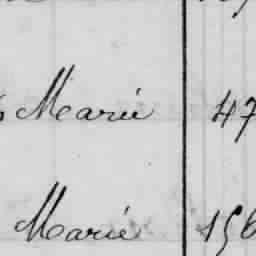 Marié 47
Marié 156